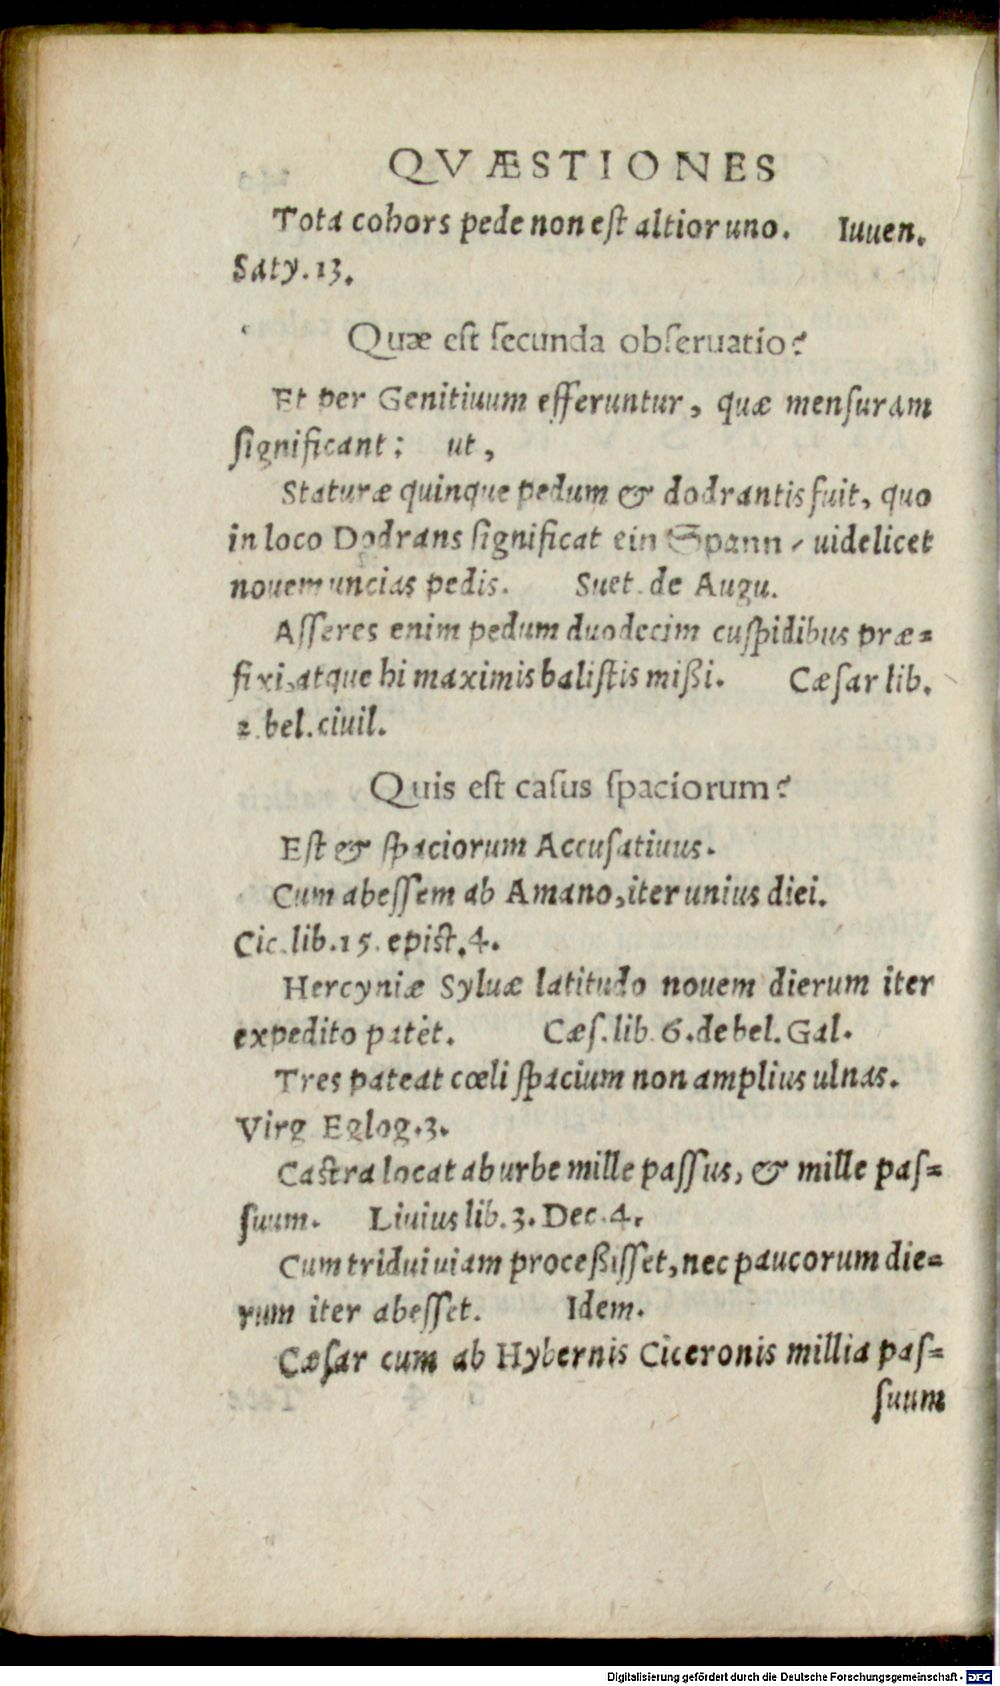 QVÆSTIONES
Tota cohors pede non eſt altior uno. Iuuen.
Saty. 13.
Quæ eſt ſecunda obſeruatio?
Et per Genitiuum efferuntur, quæ menſuram
ſignificant: ut,
Staturæ quinque pedum & dodrantis fuit, quo
in loco Dodrans ſignificat ein Spann / uidelicet
nouem uncias pedis. Suet. de Augu.
Aſſeres enim pedum duodecim cuſpidibus præ=
fixi, atque hi maximis baliſtis mißi. Cæſar lib.
2. bel. ciuil.
Quis eſt caſus ſpaciorum?
Eſt & ſpaciorum Accuſatiuus.
Cum abeſſem ab Amano, iter unius diei.
Cic. lib. 15. epiſt. 4.
Hercyniæ Syluæ latitudo nouem dierum iter
expedito patèt. Cæſ. lib. 6. de bel. Gal.
Tres pateat cœli ſpacium non amplius ulnas.
Virg Eglog. 3.
Caſtra locat ab urbe mille paſſus, & mille paſ=
ſuum. Liuius lib. 3. Dec. 4.
Cum tridui uiam proceßiſſet, nec paucorum die=
rum iter abeſſet. Idem.
Cæſar cum ab Hybernis Ciceronis millia paſ=
ſuum
Digitalisierung gefördert durch die Deutsche Forschungsgemeinschaft - DFG